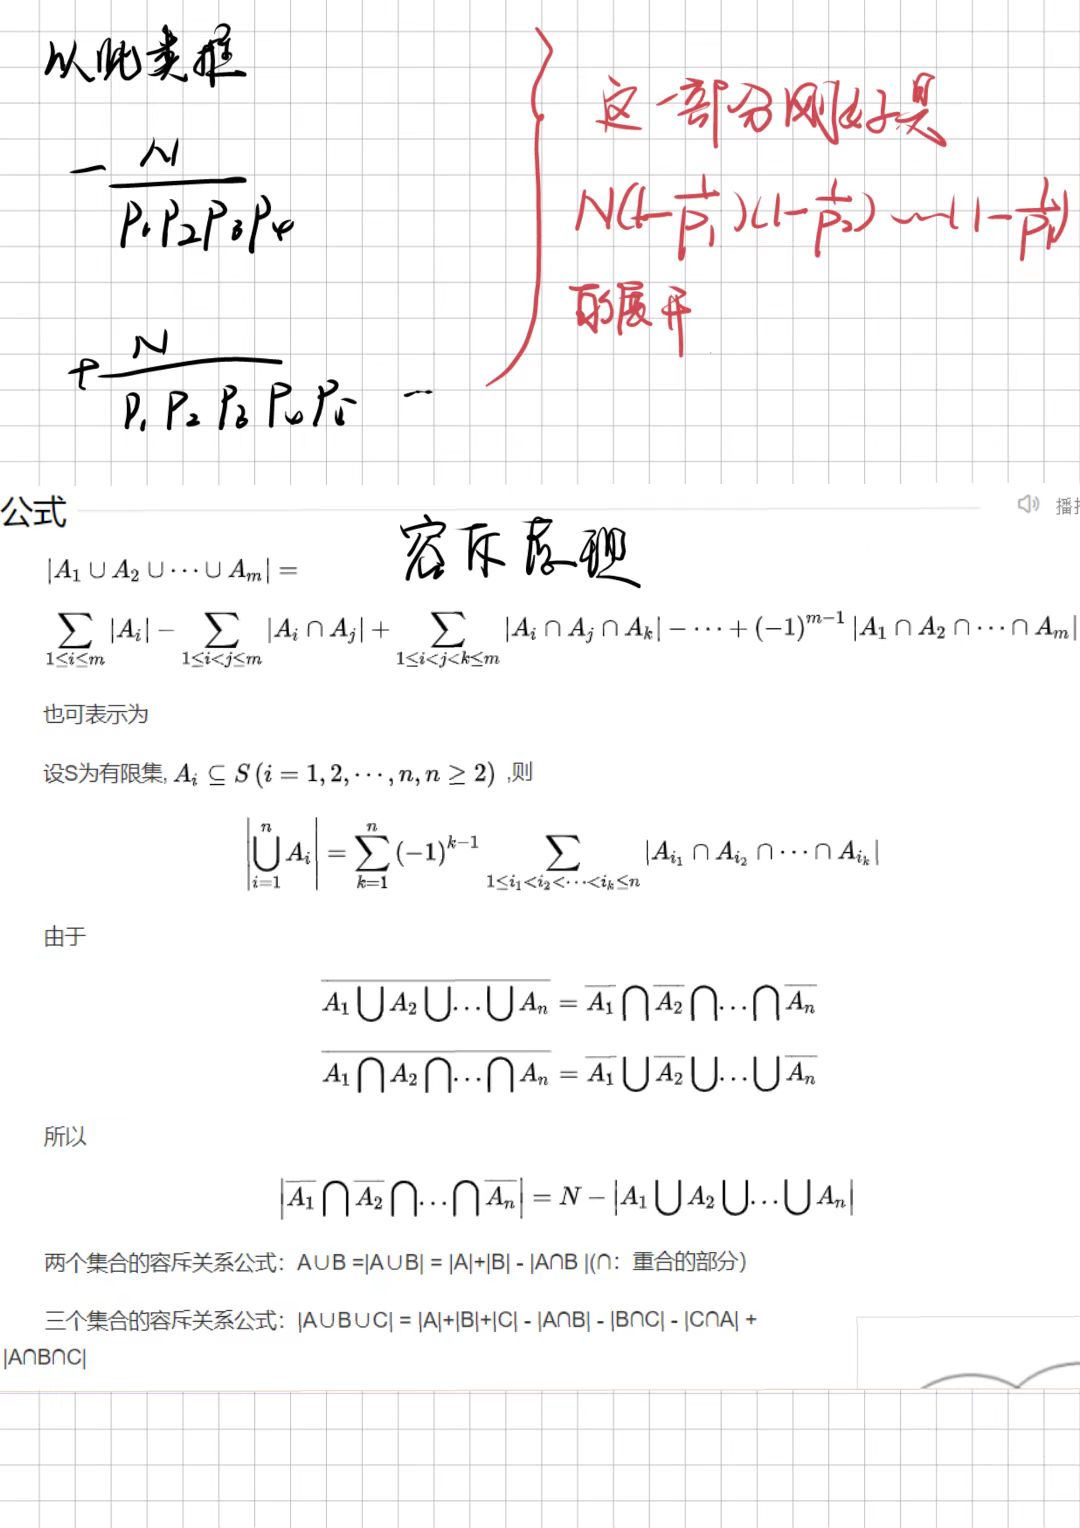 以此类推
- N / P₁P₂P₃P₄
+ N / P₁P₂P₃P₄P₅ …
这一部分刚好是
N(1-1/P₁)(1-1/P₂)…(1-1/)
的展开
公式
容斥原理
|A₁ ∪ A₂ ∪ ⋯ ∪ Aₘ| =
∑_{1≤i≤m} |A_i| − ∑_{1≤i<j≤m} |A_i ∩ A_j| + ∑_{1≤i<j<k≤m} |A_i ∩ A_j ∩ A_k| − ⋯ + (−1)^{m−1} |A₁ ∩ A₂ ∩ ⋯ ∩ Aₘ|
也可表示为
设S为有限集, A_i ⊆ S (i = 1, 2, ⋯, n, n ≥ 2) ,则
|⋃_{i=1}^{n} A_i| = ∑_{k=1}^{n} (−1)^{k−1} ∑_{1≤i₁<i₂<⋯<i_k≤n} |A_{i₁} ∩ A_{i₂} ∩ ⋯ ∩ A_{i_k}|
由于
\overline{A₁ ⋃ A₂ ⋃ … ⋃ Aₙ} = \overline{A₁} ⋂ \overline{A₂} ⋂ … ⋂ \overline{Aₙ}
\overline{A₁ ⋂ A₂ ⋂ … ⋂ Aₙ} = \overline{A₁} ⋃ \overline{A₂} ⋃ … ⋃ \overline{Aₙ}
所以
|\overline{A₁} ⋂ \overline{A₂} ⋂ … ⋂ \overline{Aₙ}| = N − |A₁ ⋃ A₂ ⋃ … ⋃ Aₙ|
两个集合的容斥关系公式：A∪B =|A∪B| = |A|+|B| - |A∩B |(∩：重合的部分）
三个集合的容斥关系公式：|A∪B∪C| = |A|+|B|+|C| - |A∩B| - |B∩C| - |C∩A| +
|A∩B∩C|